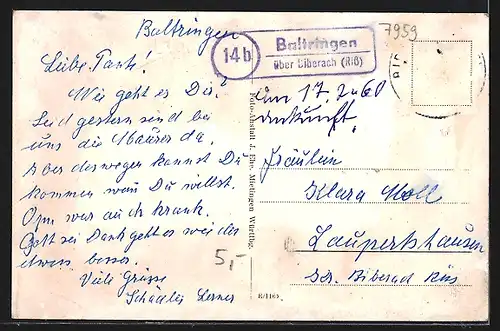 Baltringen
14b
Baltringen
über Biberach (Riß)
7959
Liebe Tante!
Wie geht es Dir?
Seid gestern sind bei
uns die Maurer da.
Aber deswegen kannst Du
kommen wan Du willst.
Opa war auch krank.
Gott sei Dank geht es wieder
etwas besser.
Viele Grüsse
5,-
am 17.2.60
Ankunft.
Fräulein
Klara Moll
Laupertshausen
Kr. Biberach Riss
Foto-Anstalt J. Ehe, Bietingen Württbg.